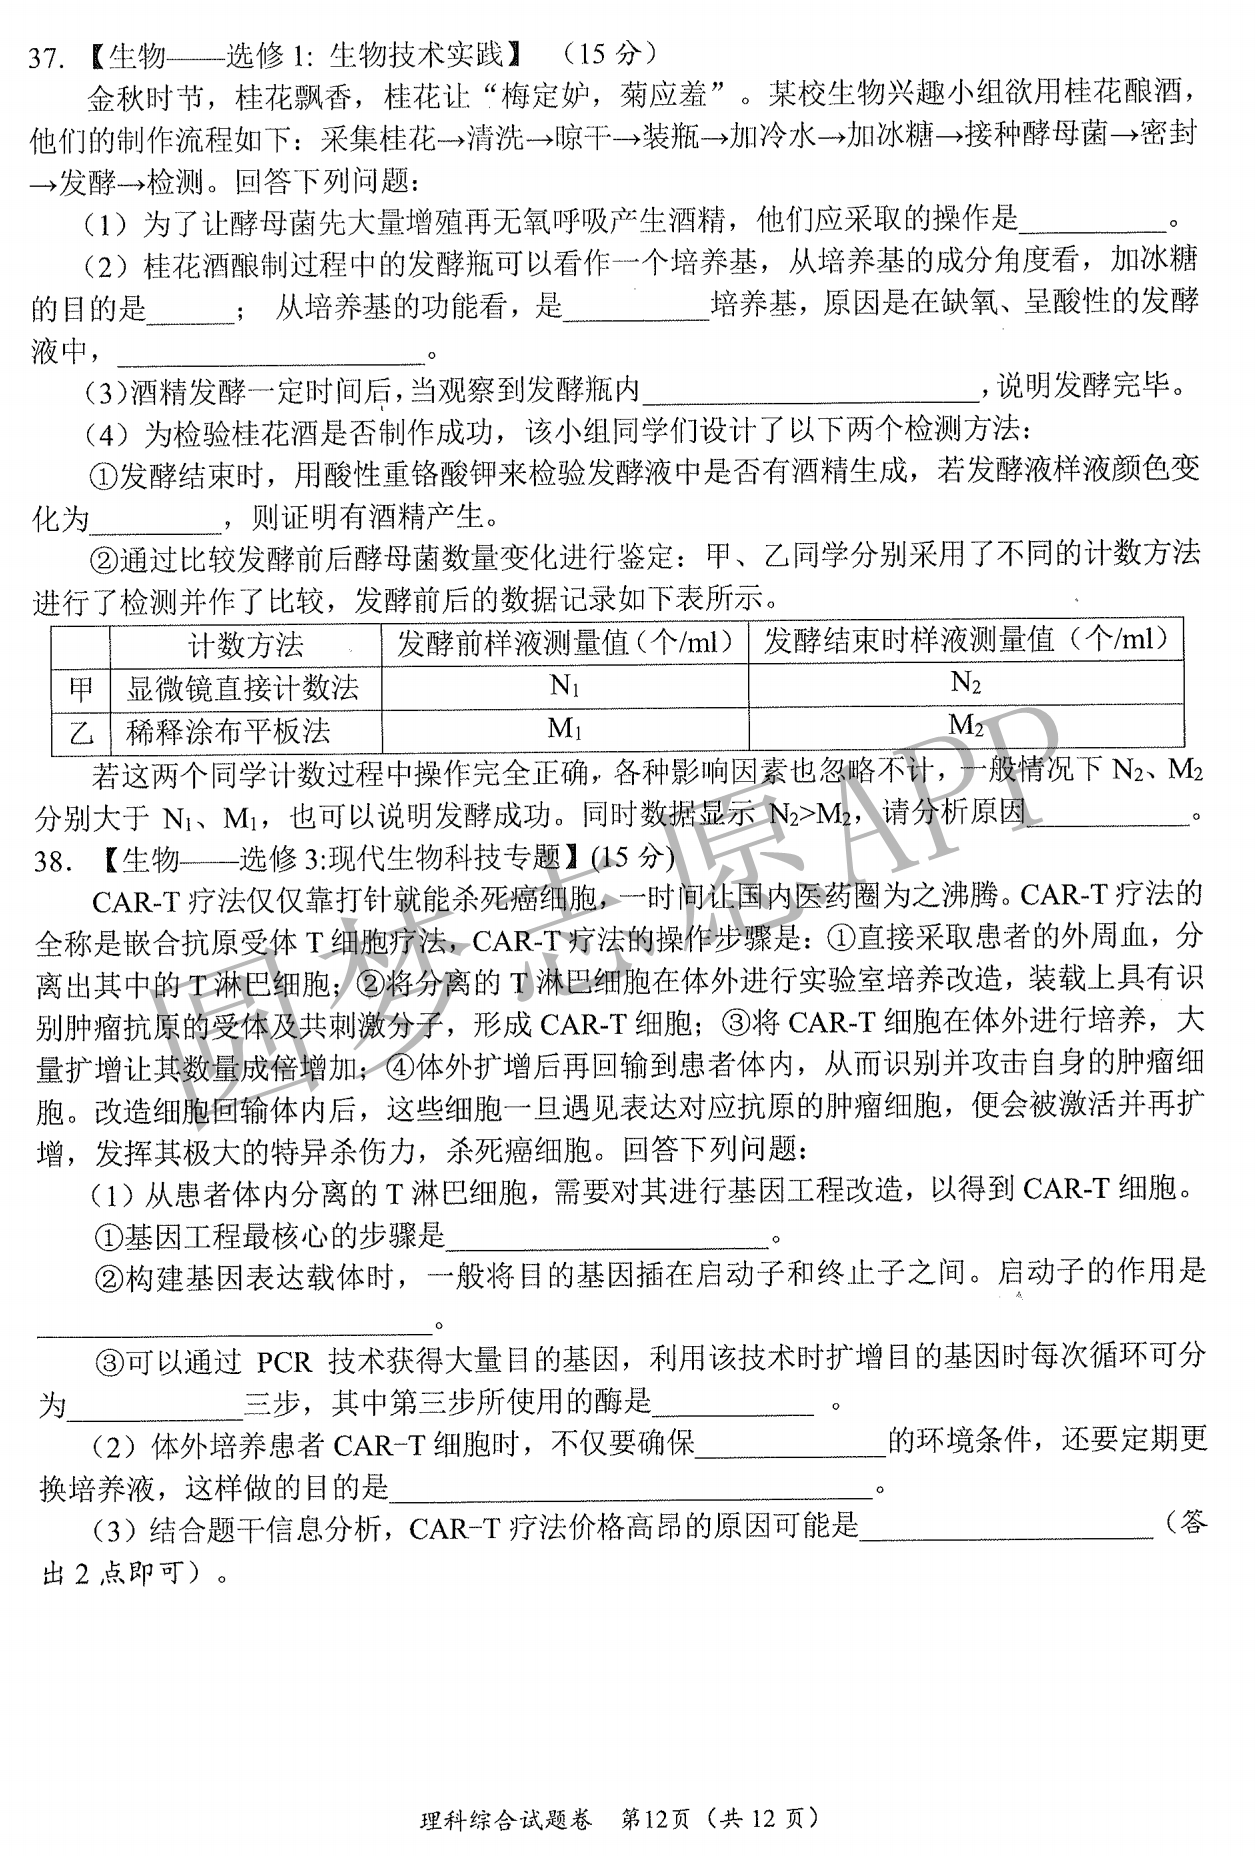 37. 【生物——选修 1: 生物技术实践】 （15 分）
金秋时节，桂花飘香，桂花让“梅定妒，菊应羞”。某校生物兴趣小组欲用桂花酿酒，
他们的制作流程如下：采集桂花→清洗→晾干→装瓶→加冷水→加冰糖→接种酵母菌→密封
→发酵→检测。回答下列问题：
（1）为了让酵母菌先大量增殖再无氧呼吸产生酒精，他们应采取的操作是__________。
（2）桂花酒酿制过程中的发酵瓶可以看作一个培养基，从培养基的成分角度看，加冰糖
的目的是______； 从培养基的功能看，是__________培养基，原因是在缺氧、呈酸性的发酵
液中，____________________。
（3)酒精发酵一定时间后，当观察到发酵瓶内______________________，说明发酵完毕。
（4）为检验桂花酒是否制作成功，该小组同学们设计了以下两个检测方法：
①发酵结束时，用酸性重铬酸钾来检验发酵液中是否有酒精生成，若发酵液样液颜色变
化为_________，则证明有酒精产生。
②通过比较发酵前后酵母菌数量变化进行鉴定：甲、乙同学分别采用了不同的计数方法
进行了检测并作了比较，发酵前后的数据记录如下表所示。
计数方法 发酵前样液测量值（个/ml） 发酵结束时样液测量值（个/ml）
甲 显微镜直接计数法 N₁ N₂
乙 稀释涂布平板法 M₁ M₂
若这两个同学计数过程中操作完全正确，各种影响因素也忽略不计，一般情况下 N₂、M₂
分别大于 N₁、M₁，也可以说明发酵成功。同时数据显示 N₂>M₂，请分析原因___________。
38. 【生物——选修 3:现代生物科技专题】(15 分)
CAR-T 疗法仅仅靠打针就能杀死癌细胞，一时间让国内医药圈为之沸腾。CAR-T 疗法的
全称是嵌合抗原受体 T 细胞疗法，CAR-T 疗法的操作步骤是：①直接采取患者的外周血，分
离出其中的 T 淋巴细胞；②将分离的 T 淋巴细胞在体外进行实验室培养改造，装载上具有识
别肿瘤抗原的受体及共刺激分子，形成 CAR-T 细胞；③将 CAR-T 细胞在体外进行培养，大
量扩增让其数量成倍增加；④体外扩增后再回输到患者体内，从而识别并攻击自身的肿瘤细
胞。改造细胞回输体内后，这些细胞一旦遇见表达对应抗原的肿瘤细胞，便会被激活并再扩
增，发挥其极大的特异杀伤力，杀死癌细胞。回答下列问题：
（1）从患者体内分离的 T 淋巴细胞，需要对其进行基因工程改造，以得到 CAR-T 细胞。
①基因工程最核心的步骤是______________________。
②构建基因表达载体时，一般将目的基因插在启动子和终止子之间。启动子的作用是
___________________________。
③可以通过 PCR 技术获得大量目的基因，利用该技术时扩增目的基因时每次循环可分
为____________三步，其中第三步所使用的酶是___________ 。
（2）体外培养患者 CAR-T 细胞时，不仅要确保_____________的环境条件，还要定期更
换培养液，这样做的目的是_________________________________。
（3）结合题干信息分析，CAR-T 疗法价格高昂的原因可能是____________________（答
出 2 点即可）。
理科综合试题卷 第12页（共 12 页）
圆梦志愿APP